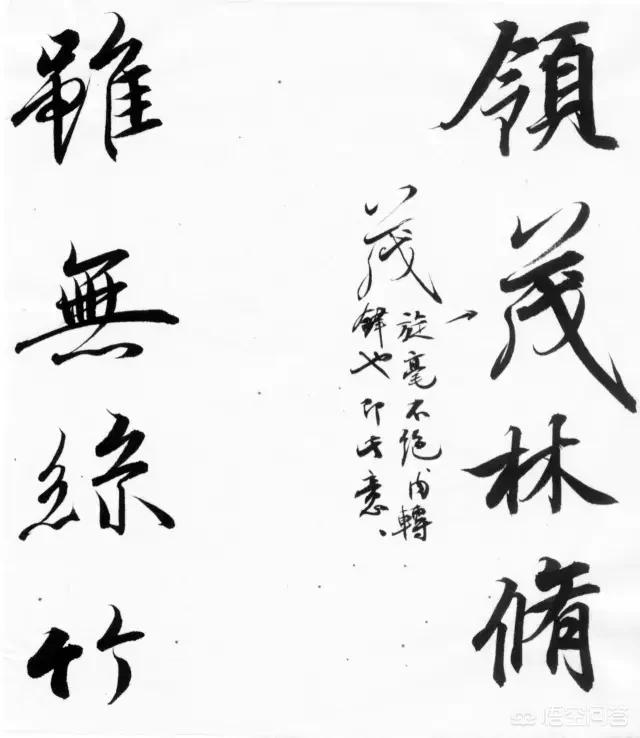 領茂林脩
茂
旋毫不絕內轉
鋒也即此意
雖無絲竹
悟空问答